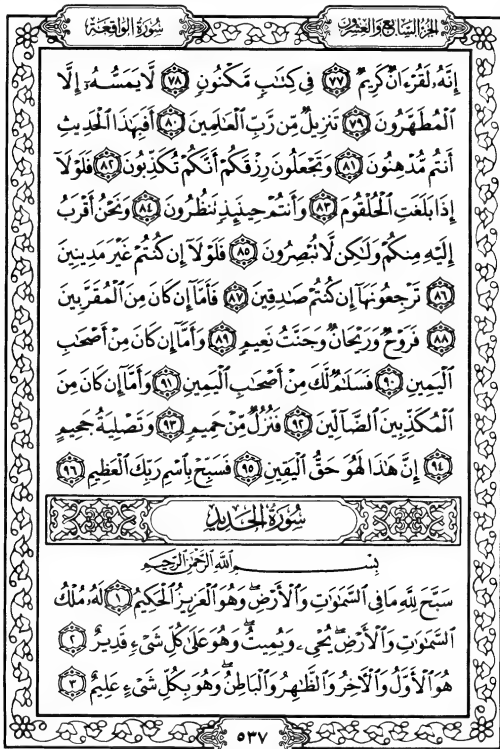 سُورَةُ الوَاقِعَةِ الجُزْءُ السَّابِعُ وَالعِشْرُونَ
إِنَّهُۥ لَقُرْءَانٌ كَرِيمٌ ٧٧ فِى كِتَٰبٍ مَّكْنُونٍ ٧٨ لَّا يَمَسُّهُۥٓ إِلَّا
ٱلْمُطَهَّرُونَ ٧٩ تَنزِيلٌ مِّن رَّبِّ ٱلْعَٰلَمِينَ ٨٠ أَفَبِهَٰذَا ٱلْحَدِيثِ
أَنتُم مُّدْهِنُونَ ٨١ وَتَجْعَلُونَ رِزْقَكُمْ أَنَّكُمْ تُكَذِّبُونَ ٨٢ فَلَوْلَآ
إِذَا بَلَغَتِ ٱلْحُلْقُومَ ٨٣ وَأَنتُمْ حِينَئِذٍ تَنظُرُونَ ٨٤ وَنَحْنُ أَقْرَبُ
إِلَيْهِ مِنكُمْ وَلَٰكِن لَّا تُبْصِرُونَ ٨٥ فَلَوْلَآ إِن كُنتُمْ غَيْرَ مَدِينِينَ
٨٦ تَرْجِعُونَهَآ إِن كُنتُمْ صَٰدِقِينَ ٨٧ فَأَمَّآ إِن كَانَ مِنَ ٱلْمُقَرَّبِينَ
٨٨ فَرَوْحٌ وَرَيْحَانٌ وَجَنَّتُ نَعِيمٍ ٨٩ وَأَمَّآ إِن كَانَ مِنْ أَصْحَٰبِ
ٱلْيَمِينِ ٩٠ فَسَلَٰمٌ لَّكَ مِنْ أَصْحَٰبِ ٱلْيَمِينِ ٩١ وَأَمَّآ إِن كَانَ مِنَ
ٱلْمُكَذِّبِينَ ٱلضَّآلِّينَ ٩٢ فَنُزُلٌ مِّنْ حَمِيمٍ ٩٣ وَتَصْلِيَةُ جَحِيمٍ
٩٤ إِنَّ هَٰذَا لَهُوَ حَقُّ ٱلْيَقِينِ ٩٥ فَسَبِّحْ بِٱسْمِ رَبِّكَ ٱلْعَظِيمِ ٩٦
سُورَةُ الحَدِيدِ
بِسْمِ ٱللَّهِ ٱلرَّحْمَٰنِ ٱلرَّحِيمِ
سَبَّحَ لِلَّهِ مَا فِى ٱلسَّمَٰوَٰتِ وَٱلْأَرْضِ ۖ وَهُوَ ٱلْعَزِيزُ ٱلْحَكِيمُ ١ لَهُۥ مُلْكُ
ٱلسَّمَٰوَٰتِ وَٱلْأَرْضِ ۖ يُحْىِۦ وَيُمِيتُ ۖ وَهُوَ عَلَىٰ كُلِّ شَىْءٍ قَدِيرٌ ٢
هُوَ ٱلْأَوَّلُ وَٱلْءَاخِرُ وَٱلظَّٰهِرُ وَٱلْبَاطِنُ ۖ وَهُوَ بِكُلِّ شَىْءٍ عَلِيمٌ ٣
٥٣٧